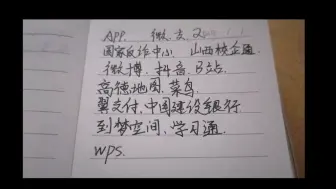 APP. 微、去、2
国家反诈中心 山西校企通
微博、抖音、B站
高德地图、菜鸟
翼支付、中国建设银行
到梦空间、学习通
wps.